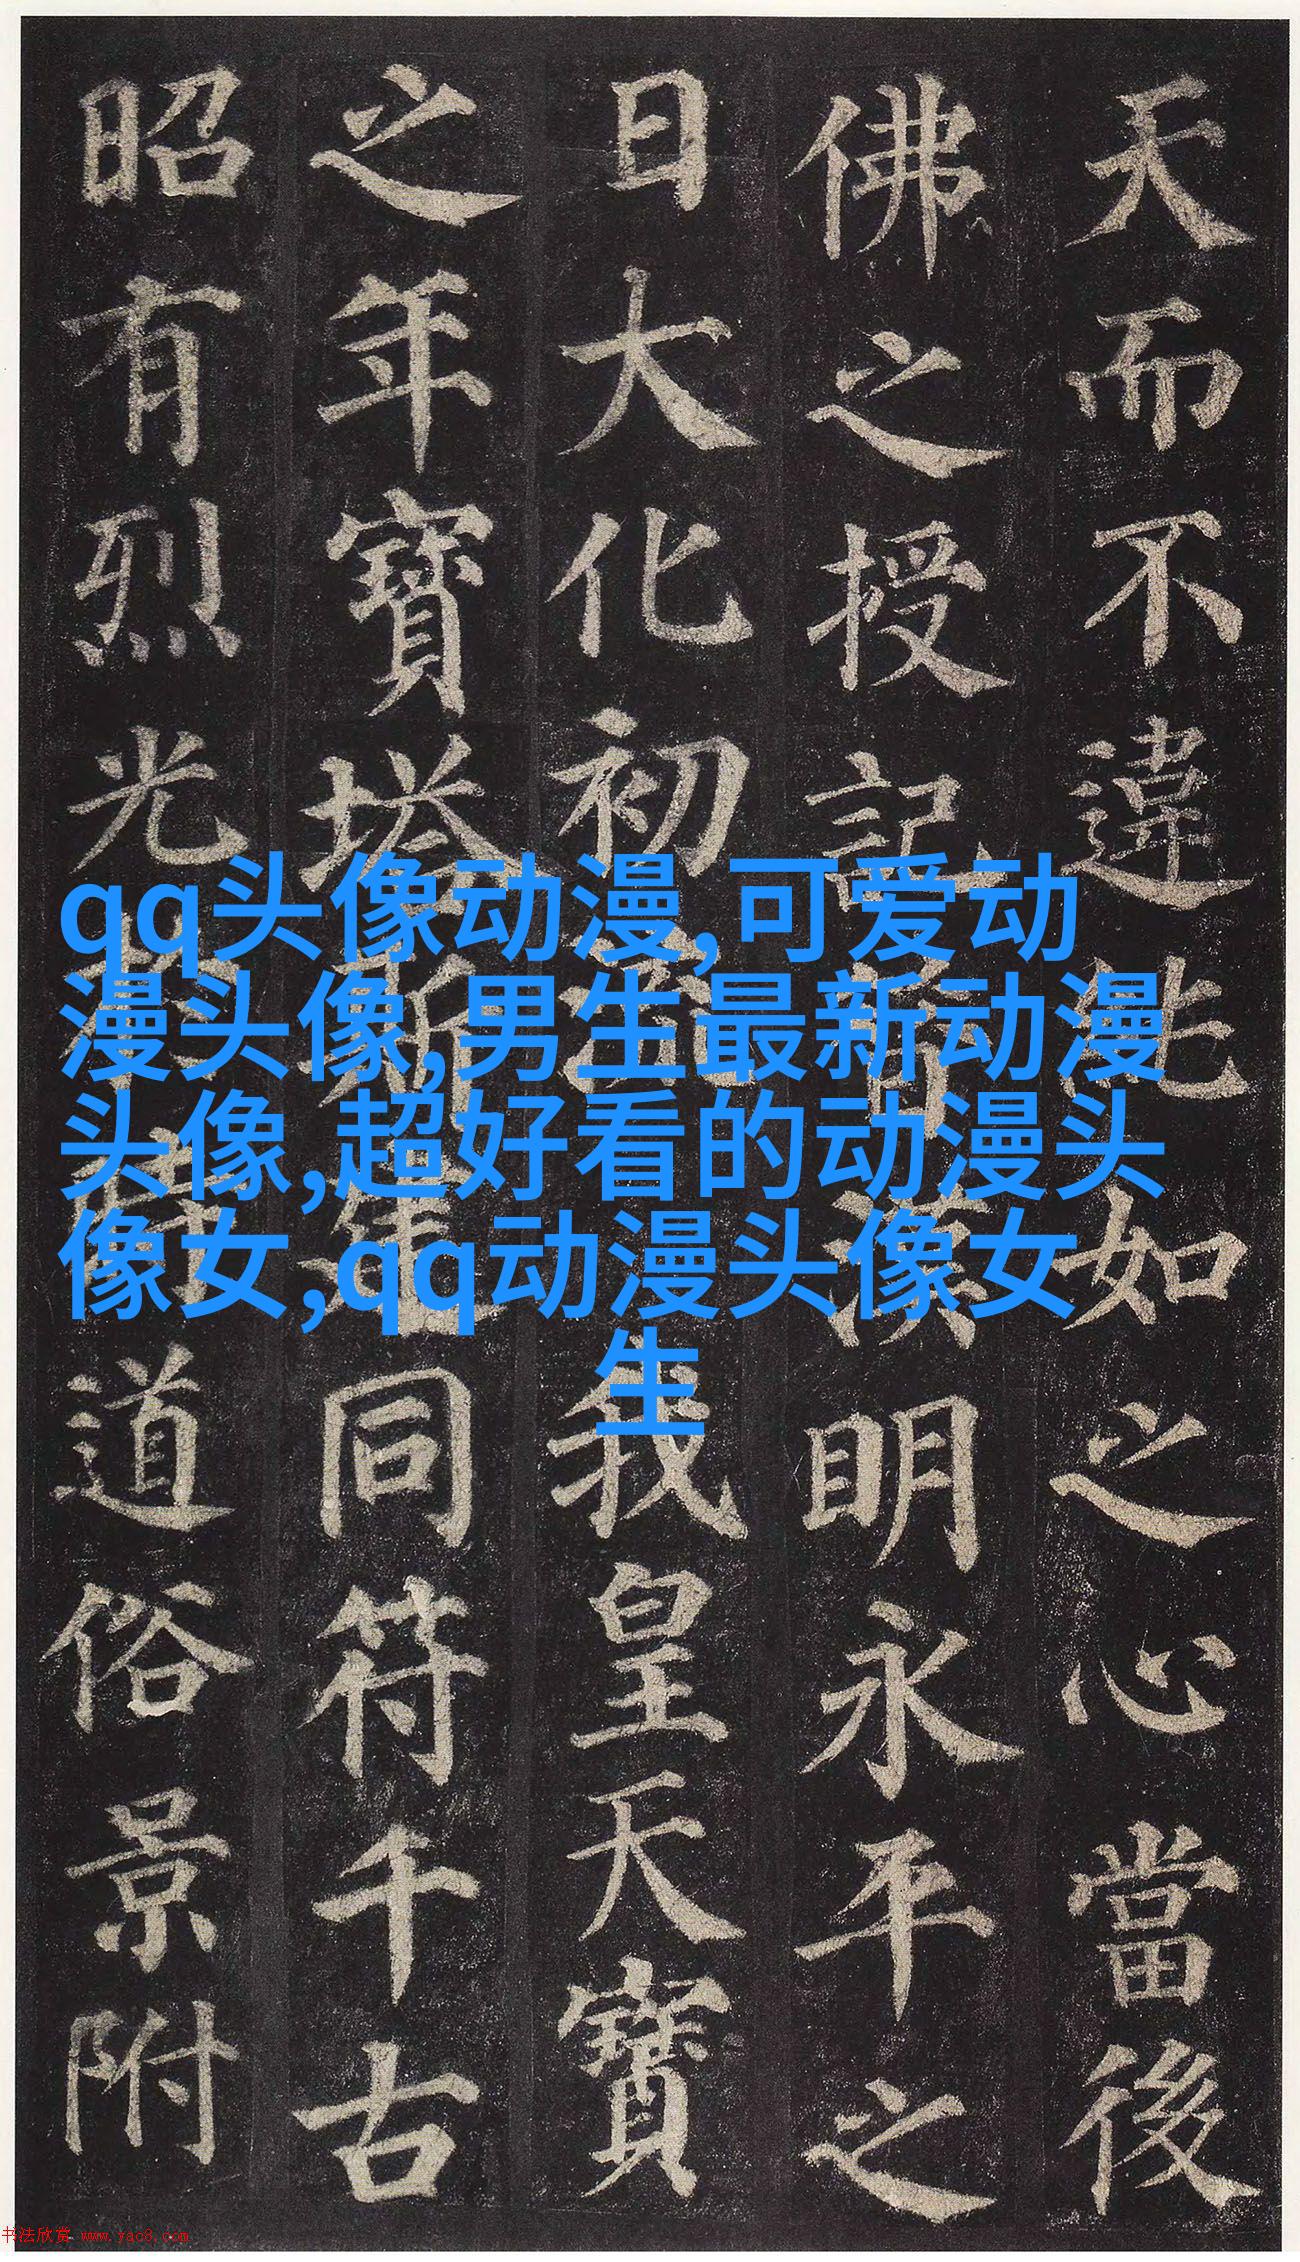 天而不違如之心當後
佛之授記昔漢明永平之
日大化初流我皇天寶
之年寶塔斯建同符千古
昭有烈光於時道俗景附
qq头像动漫,可爱动
漫头像,男生最新动漫
头像,超好看的动漫头
像女,qq动漫头像女
生
书法欣赏 www.yac8.com